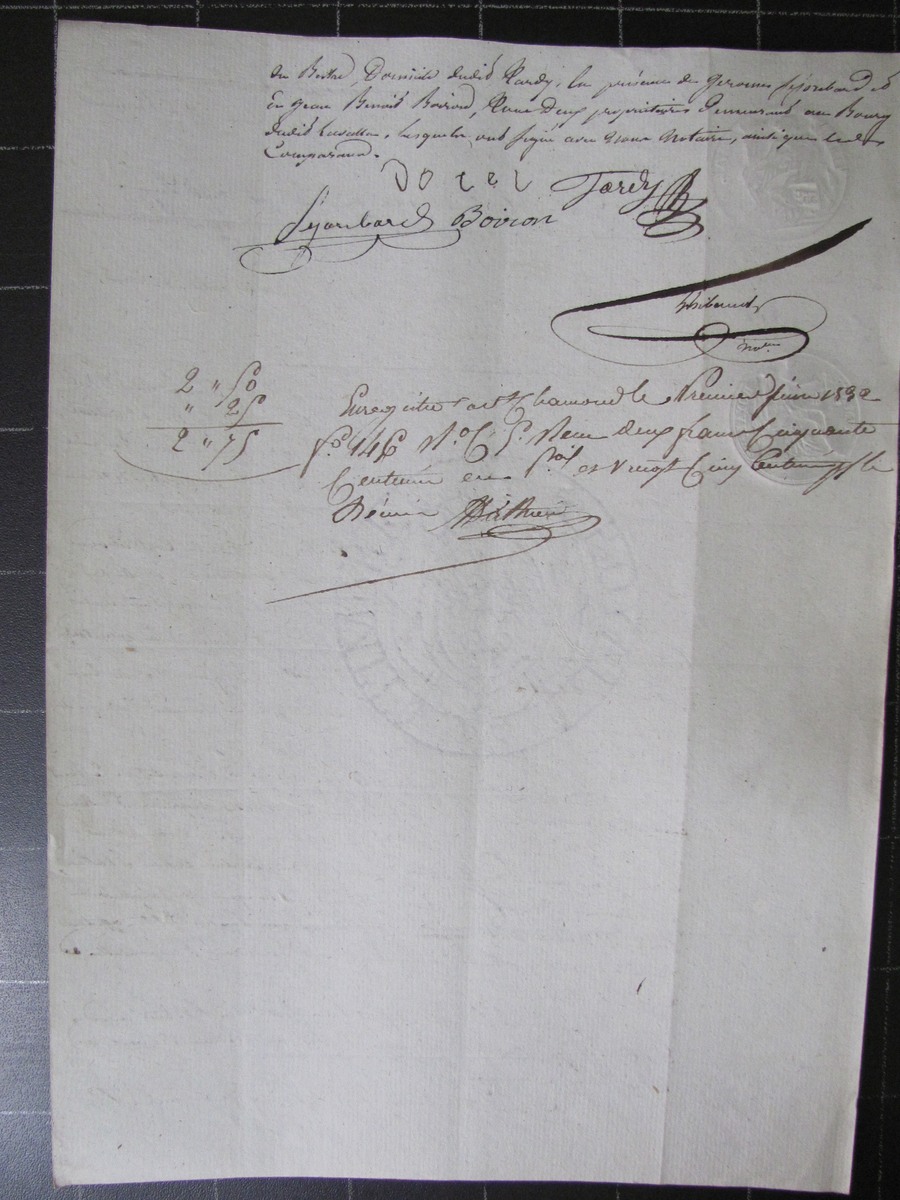 Domicile dudit Tardy, en présence de Gerome Sijoubard et
de Jean Benoit Boiron, tous Deux propriétaires Demeurant au Bourg
dudit lavalla, lesquels ont signé avec nous Notaire, ainsi que les
Comparans.
Dorel Tardy
Sijoubard Boiron
Thibaud
nore
2 " 50
" 25
2 " 75
Enregistré a St Chamond le Premier juin 1832
fo 146 Ro C. 5. Recu deux francs Cinquante
Centimes en Pal et vingt Cinq Centimes pr le
Décime